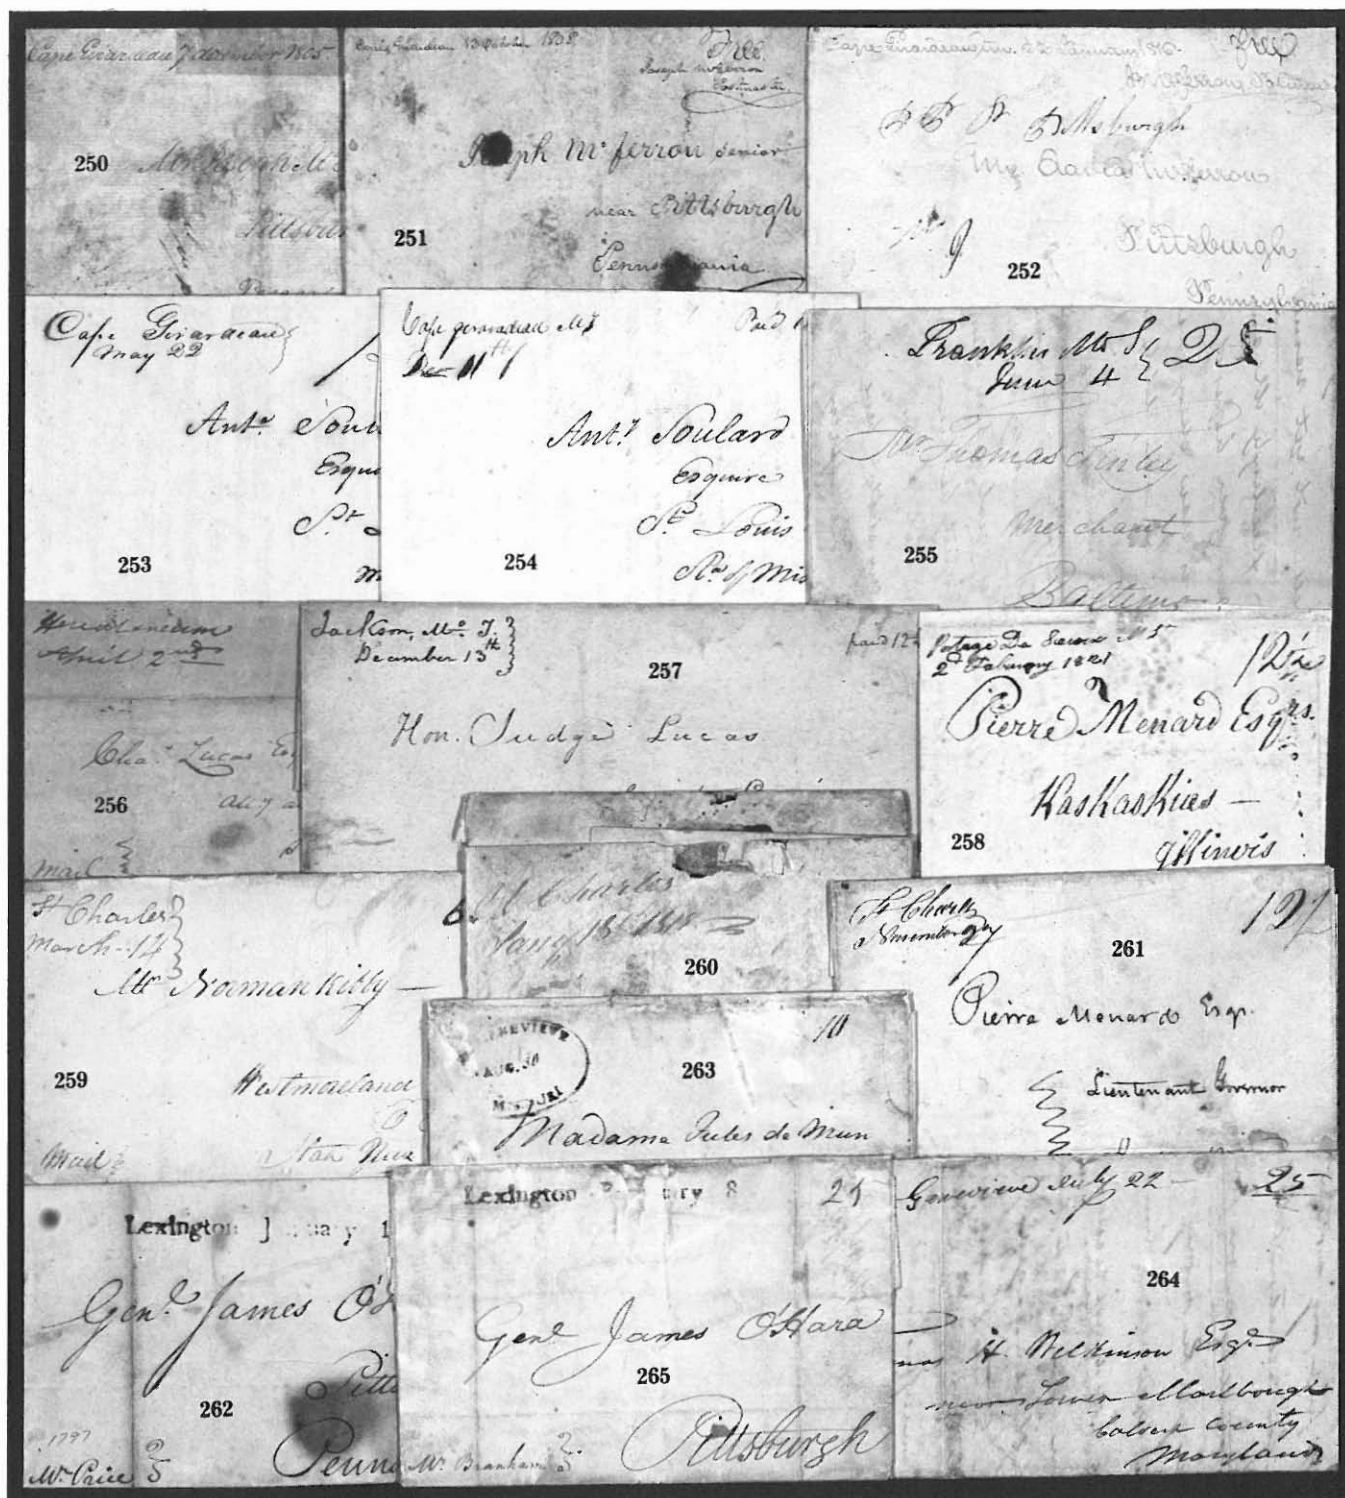 Cape Girardeau 7 december 1805.
250
Pittsbur
13 October 1808
Free
Joseph McFerron
Postmaster.
Joseph McFerron senior
near Pittsburgh
251
Pennsylvania
Free
Pittsburgh
252
Pittsburgh
Pennsylvania
Cape Girardeau
May 22
Anto. Soul
Esqui
St
253
Cape girardeau M T
Paid 1
Dec 11th
Anty. Soulard
Esquire
St. Louis
254
Franklin Mo. T
25
June 4
Mr Thomas Finley
Merchant
255
Baltimo
Herculaneum
April 2nd
Chas. Lucas Esq
256
Mail
Jackson, Mo. T.
December 13th
paid 12½
257
Hon. Judge Lucas
Potage De Sioux M T
2d February 1821
12½
Pierre Menard Esqrs.
Kaskaskias —
258
Illinois
St Charles
March 14
Mr Norman Kibby —
259
Westmoreland
Mail
St Charles
Jany 18th 1818
260
St Charles
12½
261
Pierre Menard Esqr.
Lieutenant Governor
NEVIEVE
AUG. 30
10
263
Madame Jules de Mun
Lexington January 1
Genl. James O'H
Pitts
262
1797
Mr. Price
Penn
Lexington F ury 8
25
Genl James O'Hara
265
Pittsburgh
Mr. Branham
Genevieve July 22 —
25
264
H. Wilkinson Esqr
near Lower Marlbough
Calvert County
Maryland